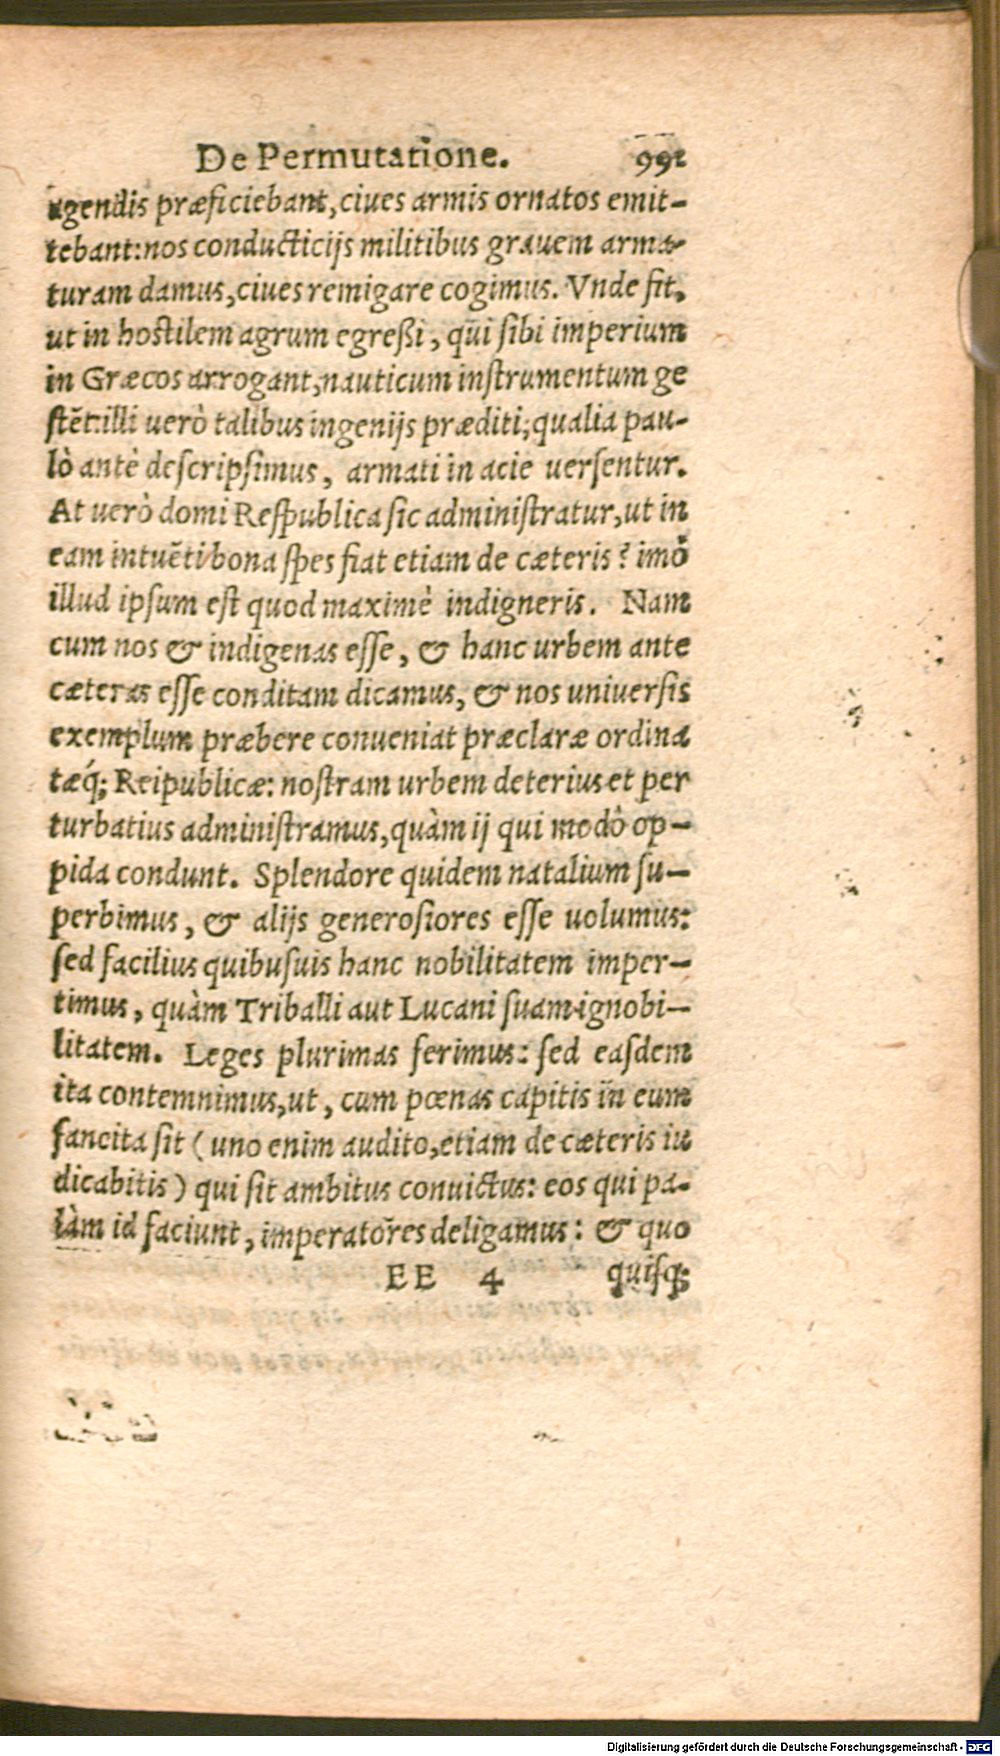 De Permutatione. 991
agendis præficiebant, ciues armis ornatos emit-
tebant: nos conducticijs militibus grauem arma-
turam damus, ciues remigare cogimus. Vnde fit,
ut in hostilem agrum egreßi, qui sibi imperium
in Græcos arrogant, nauticum instrumentum ge
stēt: illi uerò talibus ingenijs præditi, qualia pau-
lò antè descripsimus, armati in acie uersentur.
At uerò domi Respublica sic administratur, ut in
eam intuēti bona spes fiat etiam de cæteris? imò
illud ipsum est quod maximè indigneris. Nam
cum nos & indigenas esse, & hanc urbem ante
cæteras esse conditam dicamus, & nos uniuersis
exemplum præbere conueniat præclaræ ordina
tæq́; Reipublicæ: nostram urbem deterius et per
turbatius administramus, quàm ij qui modò op-
pida condunt. Splendore quidem natalium su-
perbimus, & alijs generosiores esse uolumus:
sed facilius quibusuis hanc nobilitatem imper-
timus, quàm Triballi aut Lucani suam ignobi-
litatem. Leges plurimas ferimus: sed easdem
ita contemnimus, ut, cum pœnas capitis in eum
sancita sit (uno enim audito, etiam de cæteris iu
dicabitis) qui sit ambitus conuictus: eos qui pa-
làm id faciunt, imperatores deligamus: & quo
EE 4 quisq;
Digitalisierung gefördert durch die Deutsche Forschungsgemeinschaft - DFG